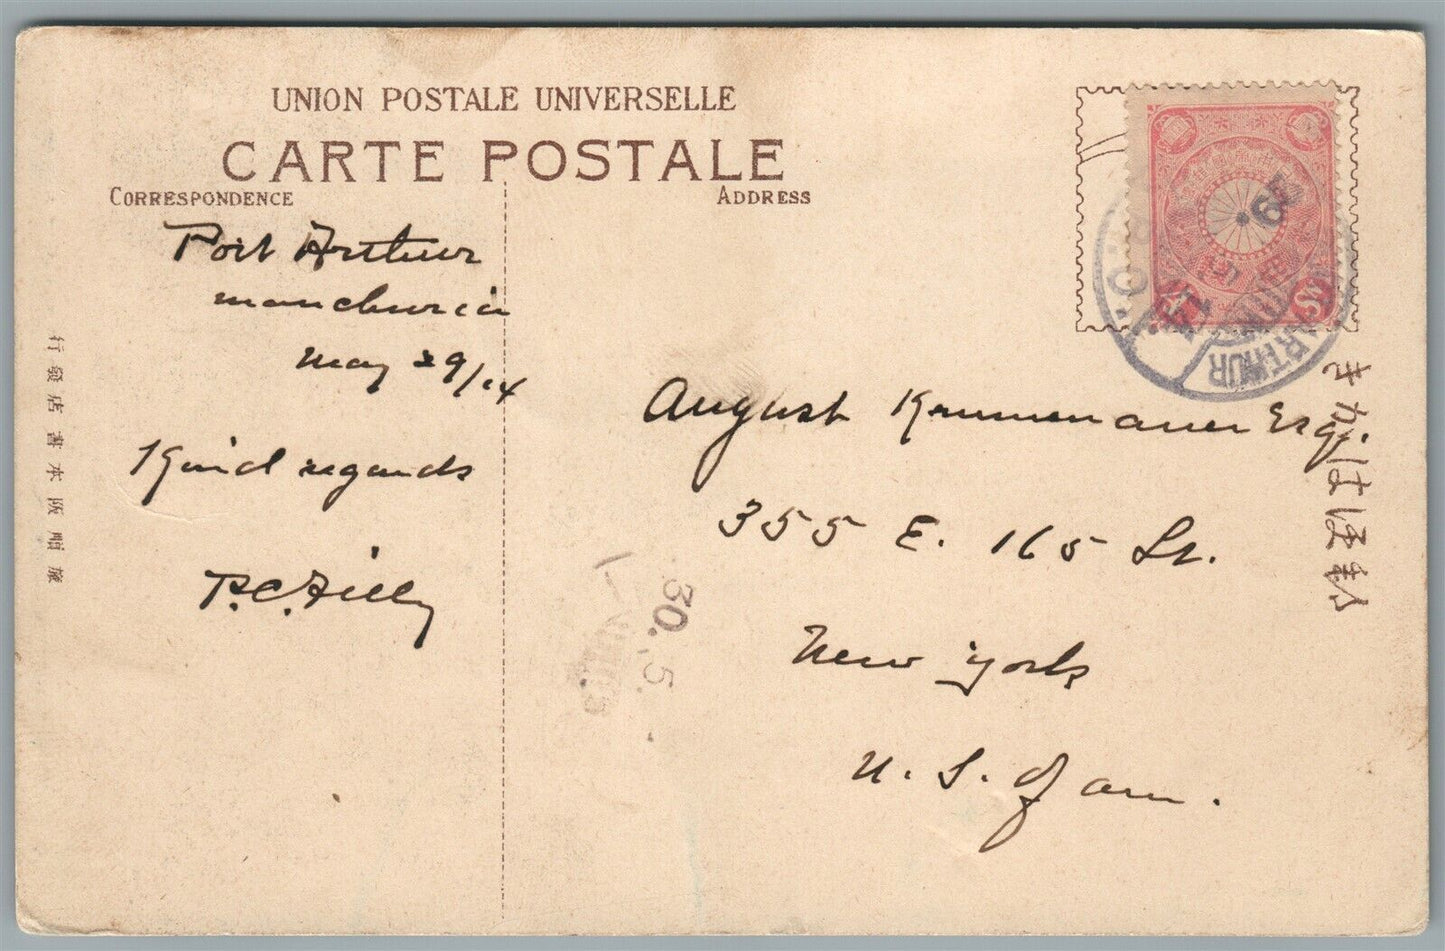 UNION POSTALE UNIVERSELLE
CARTE POSTALE
CORRESPONDENCE
ADDRESS
Port Arthur
Manchuria
May 29/14
Kind regards
P.C. Filly
August Kammenauer Esq.
355 E. 165 St.
New York
U. S. of Am.
きかは便郵
行發店書本阪順旅
ARTHUR
30.5.